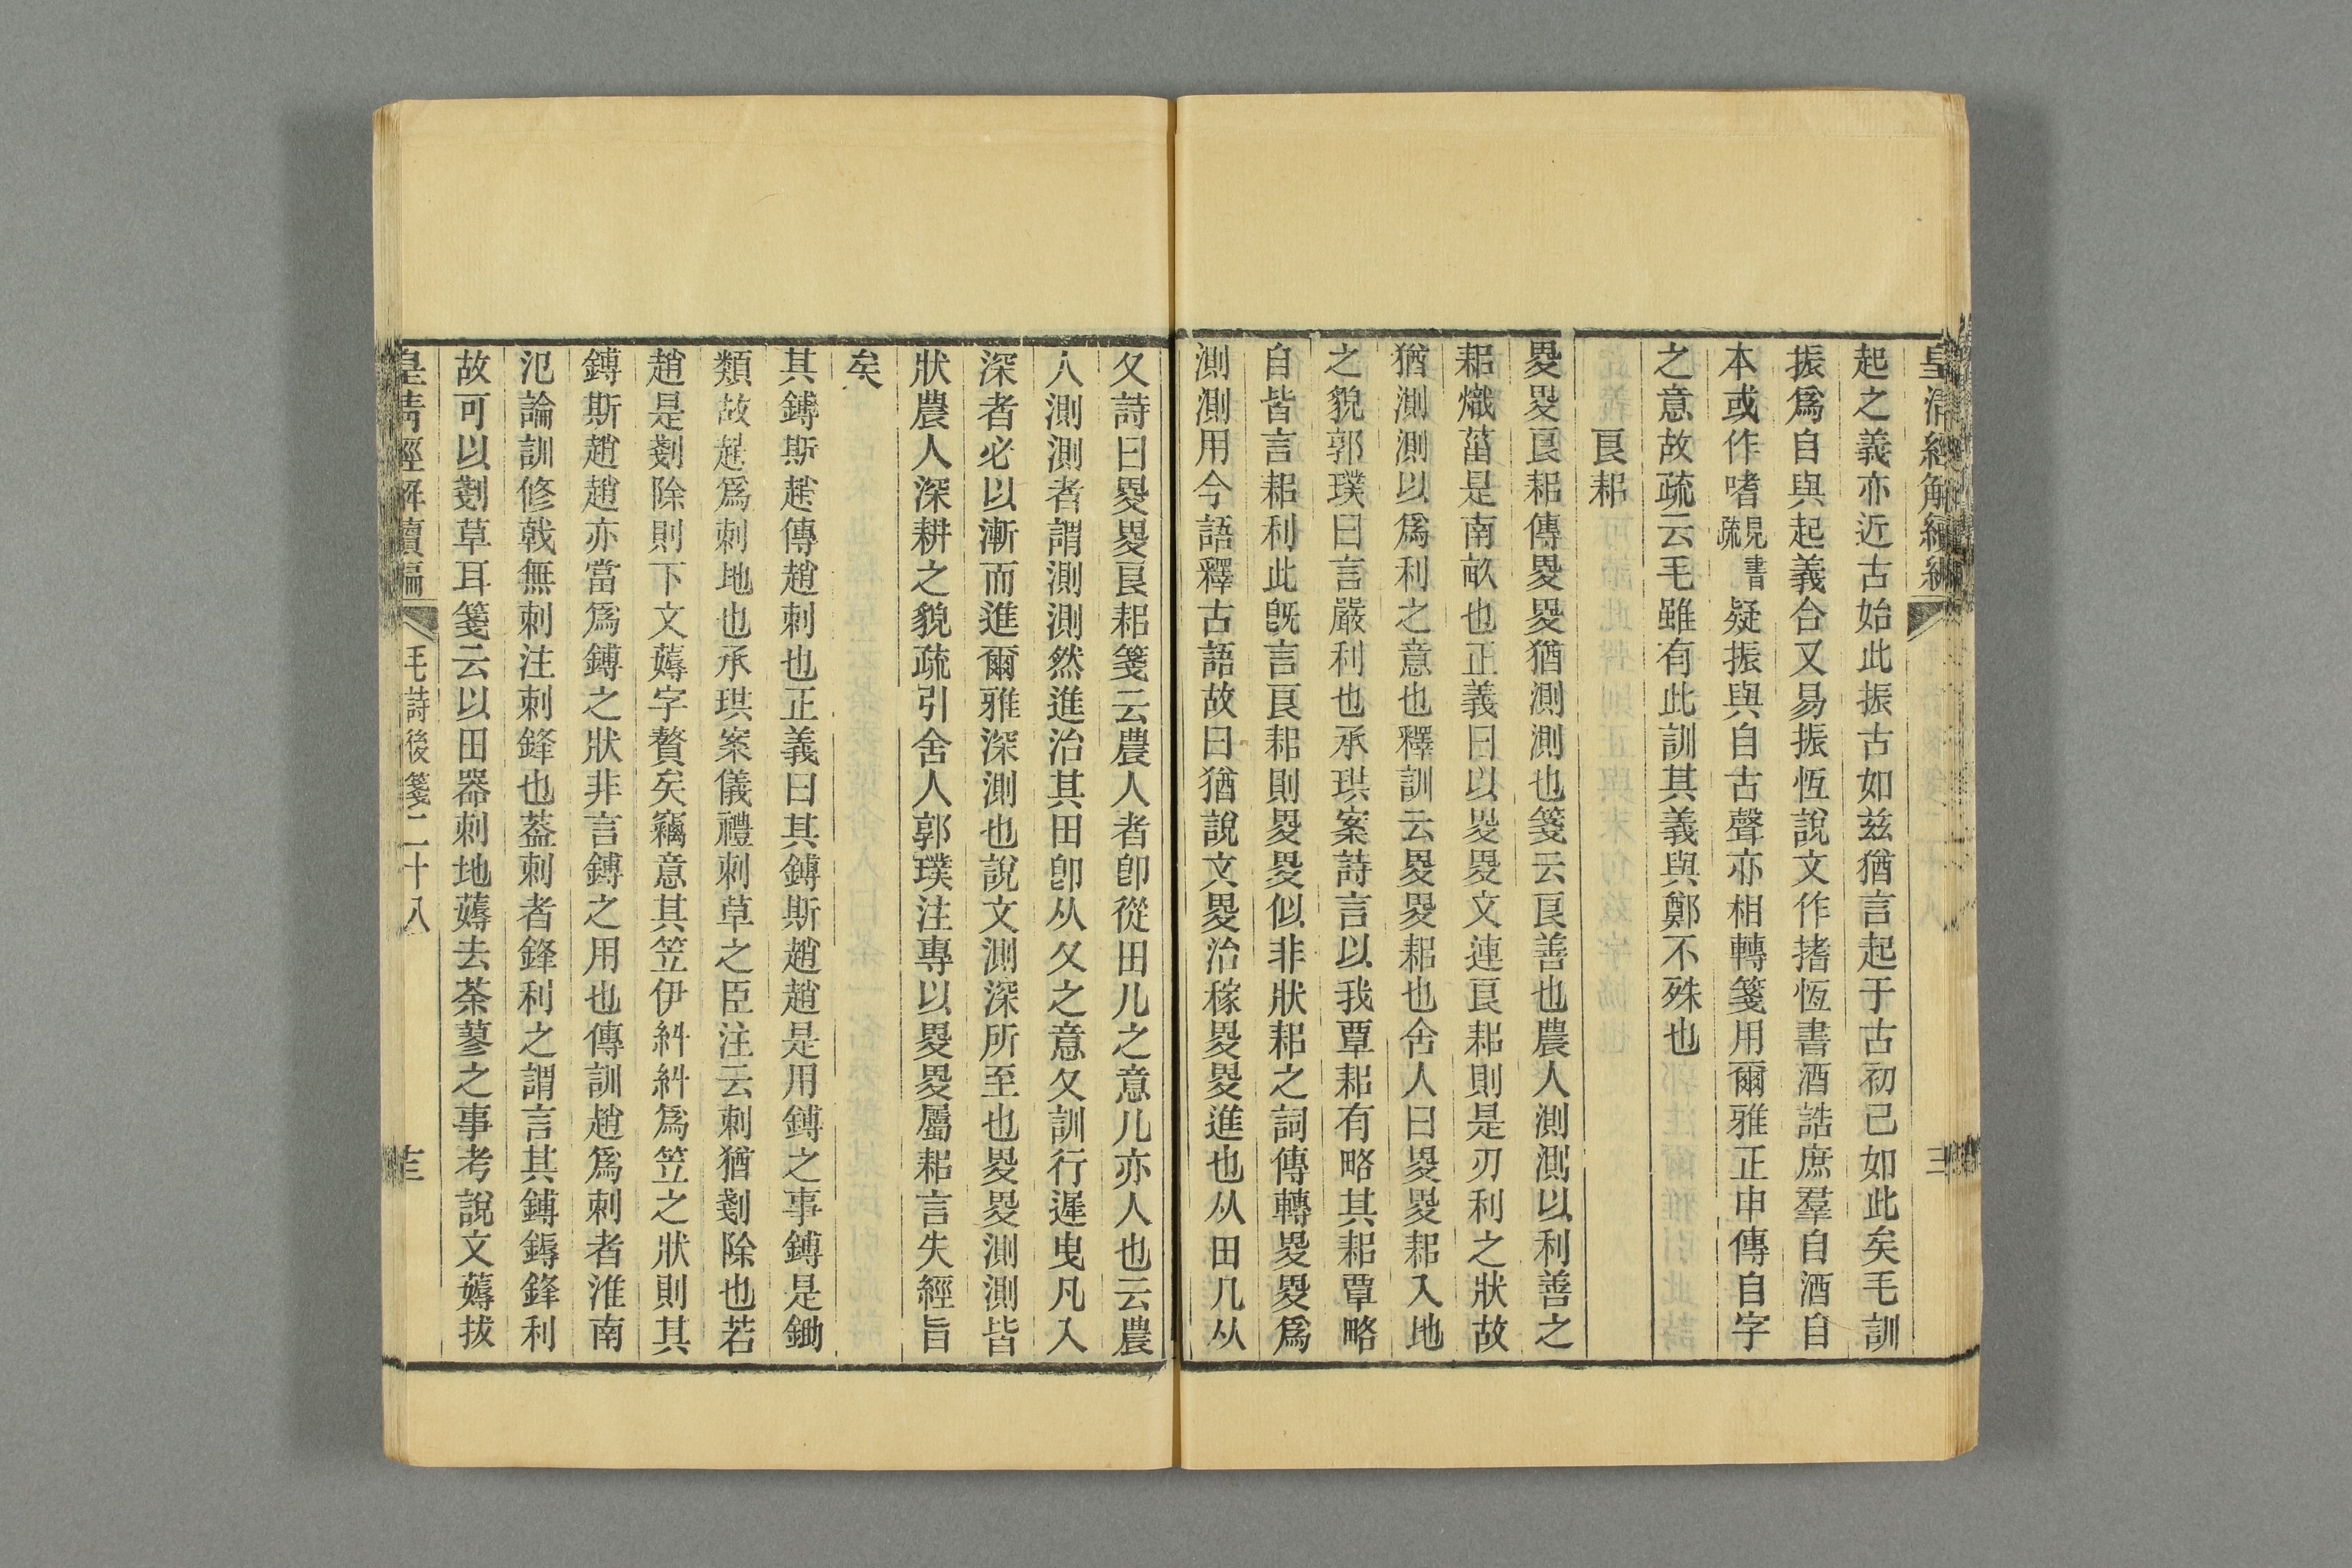 皇清經解續編
三
起之義亦近古始此振古如兹猶言起于古初已如此矣毛訓
振爲自與起義合又易振恆說文作㨋恆書酒誥庶羣自酒自
本或作嗜見書疏疑振與自古聲亦相轉箋用爾雅正申傳自字
之意故疏云毛雖有此訓其義與鄭不殊也
良耜
畟畟良耜傳畟畟猶測測也箋云良善也農人測測以利善之
耜熾菑是南畝也正義曰以畟畟文連良耜則是刃利之狀故
猶測測以爲利之意也釋訓云畟畟耜也舍人曰畟畟耜入地
之貌郭璞曰言嚴利也承珙案詩言以我覃耜有略其耜覃略
自皆言耜利此旣言良耜則畟畟似非狀耜之詞傳轉畟畟爲
測測用今語釋古語故曰猶說文畟治稼畟畟進也从田儿从
夂詩曰畟畟良耜箋云農人者卽從田儿之意儿亦人也云農
人測測者謂測測然進治其田卽从夂之意夂訓行遲曳凡入
深者必以漸而進爾雅深測也說文測深所至也畟畟測測皆
狀農人深耕之貌疏引舍人郭璞注專以畟畟屬耜言失經旨
矣
其鎛斯趙傳趙刺也正義曰其鎛斯趙趙是用鎛之事鎛是鋤
類故趙爲刺地也承珙案儀禮刺草之臣注云刺猶剗除也若
趙是剗除則下文薅字贅矣竊意其笠伊糾糾爲笠之狀則其
鎛斯趙趙亦當爲鎛之狀非言鎛之用也傳訓趙爲刺者淮南
氾論訓修戟無刺注刺鋒也葢刺者鋒利之謂言其鎛鎒鋒利
故可以剗草耳箋云以田器刺地薅去荼蓼之事考說文薅拔
皇清經解續編
毛詩後箋二十八